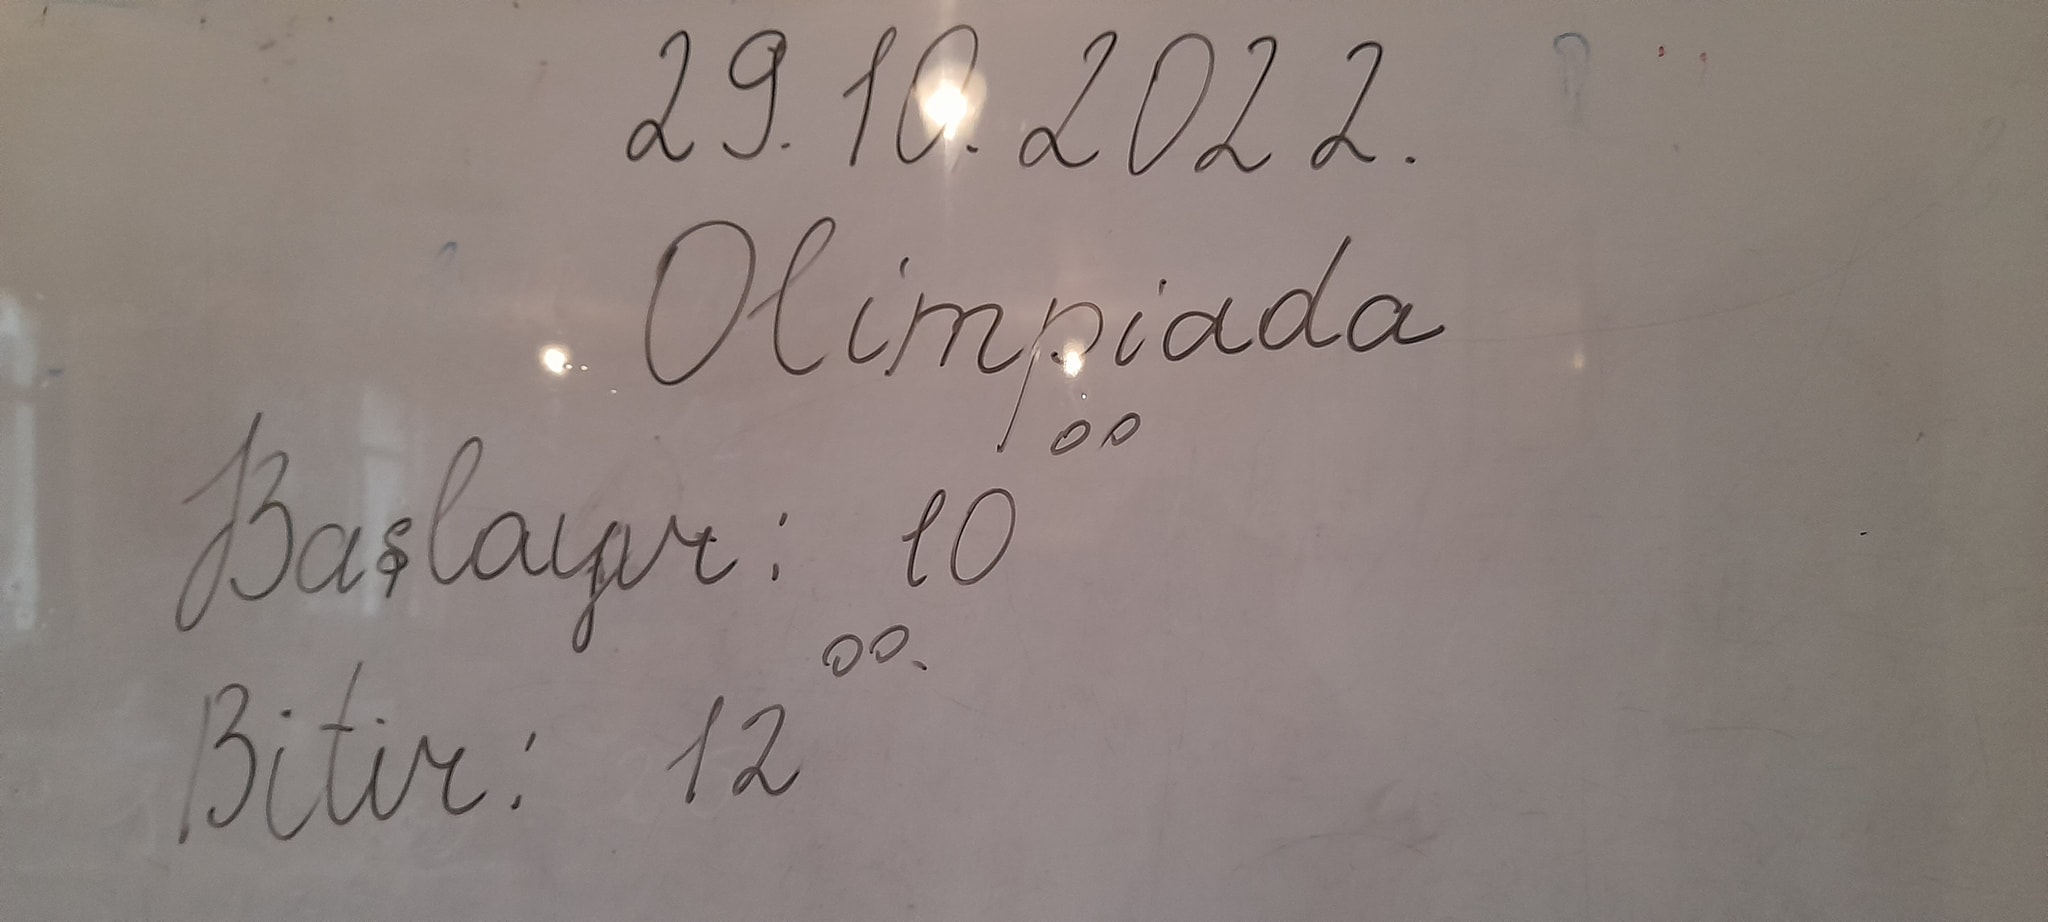 29.10.2022.
Olimpiada
Başlayır: 10⁰⁰
Bitir: 12⁰⁰.